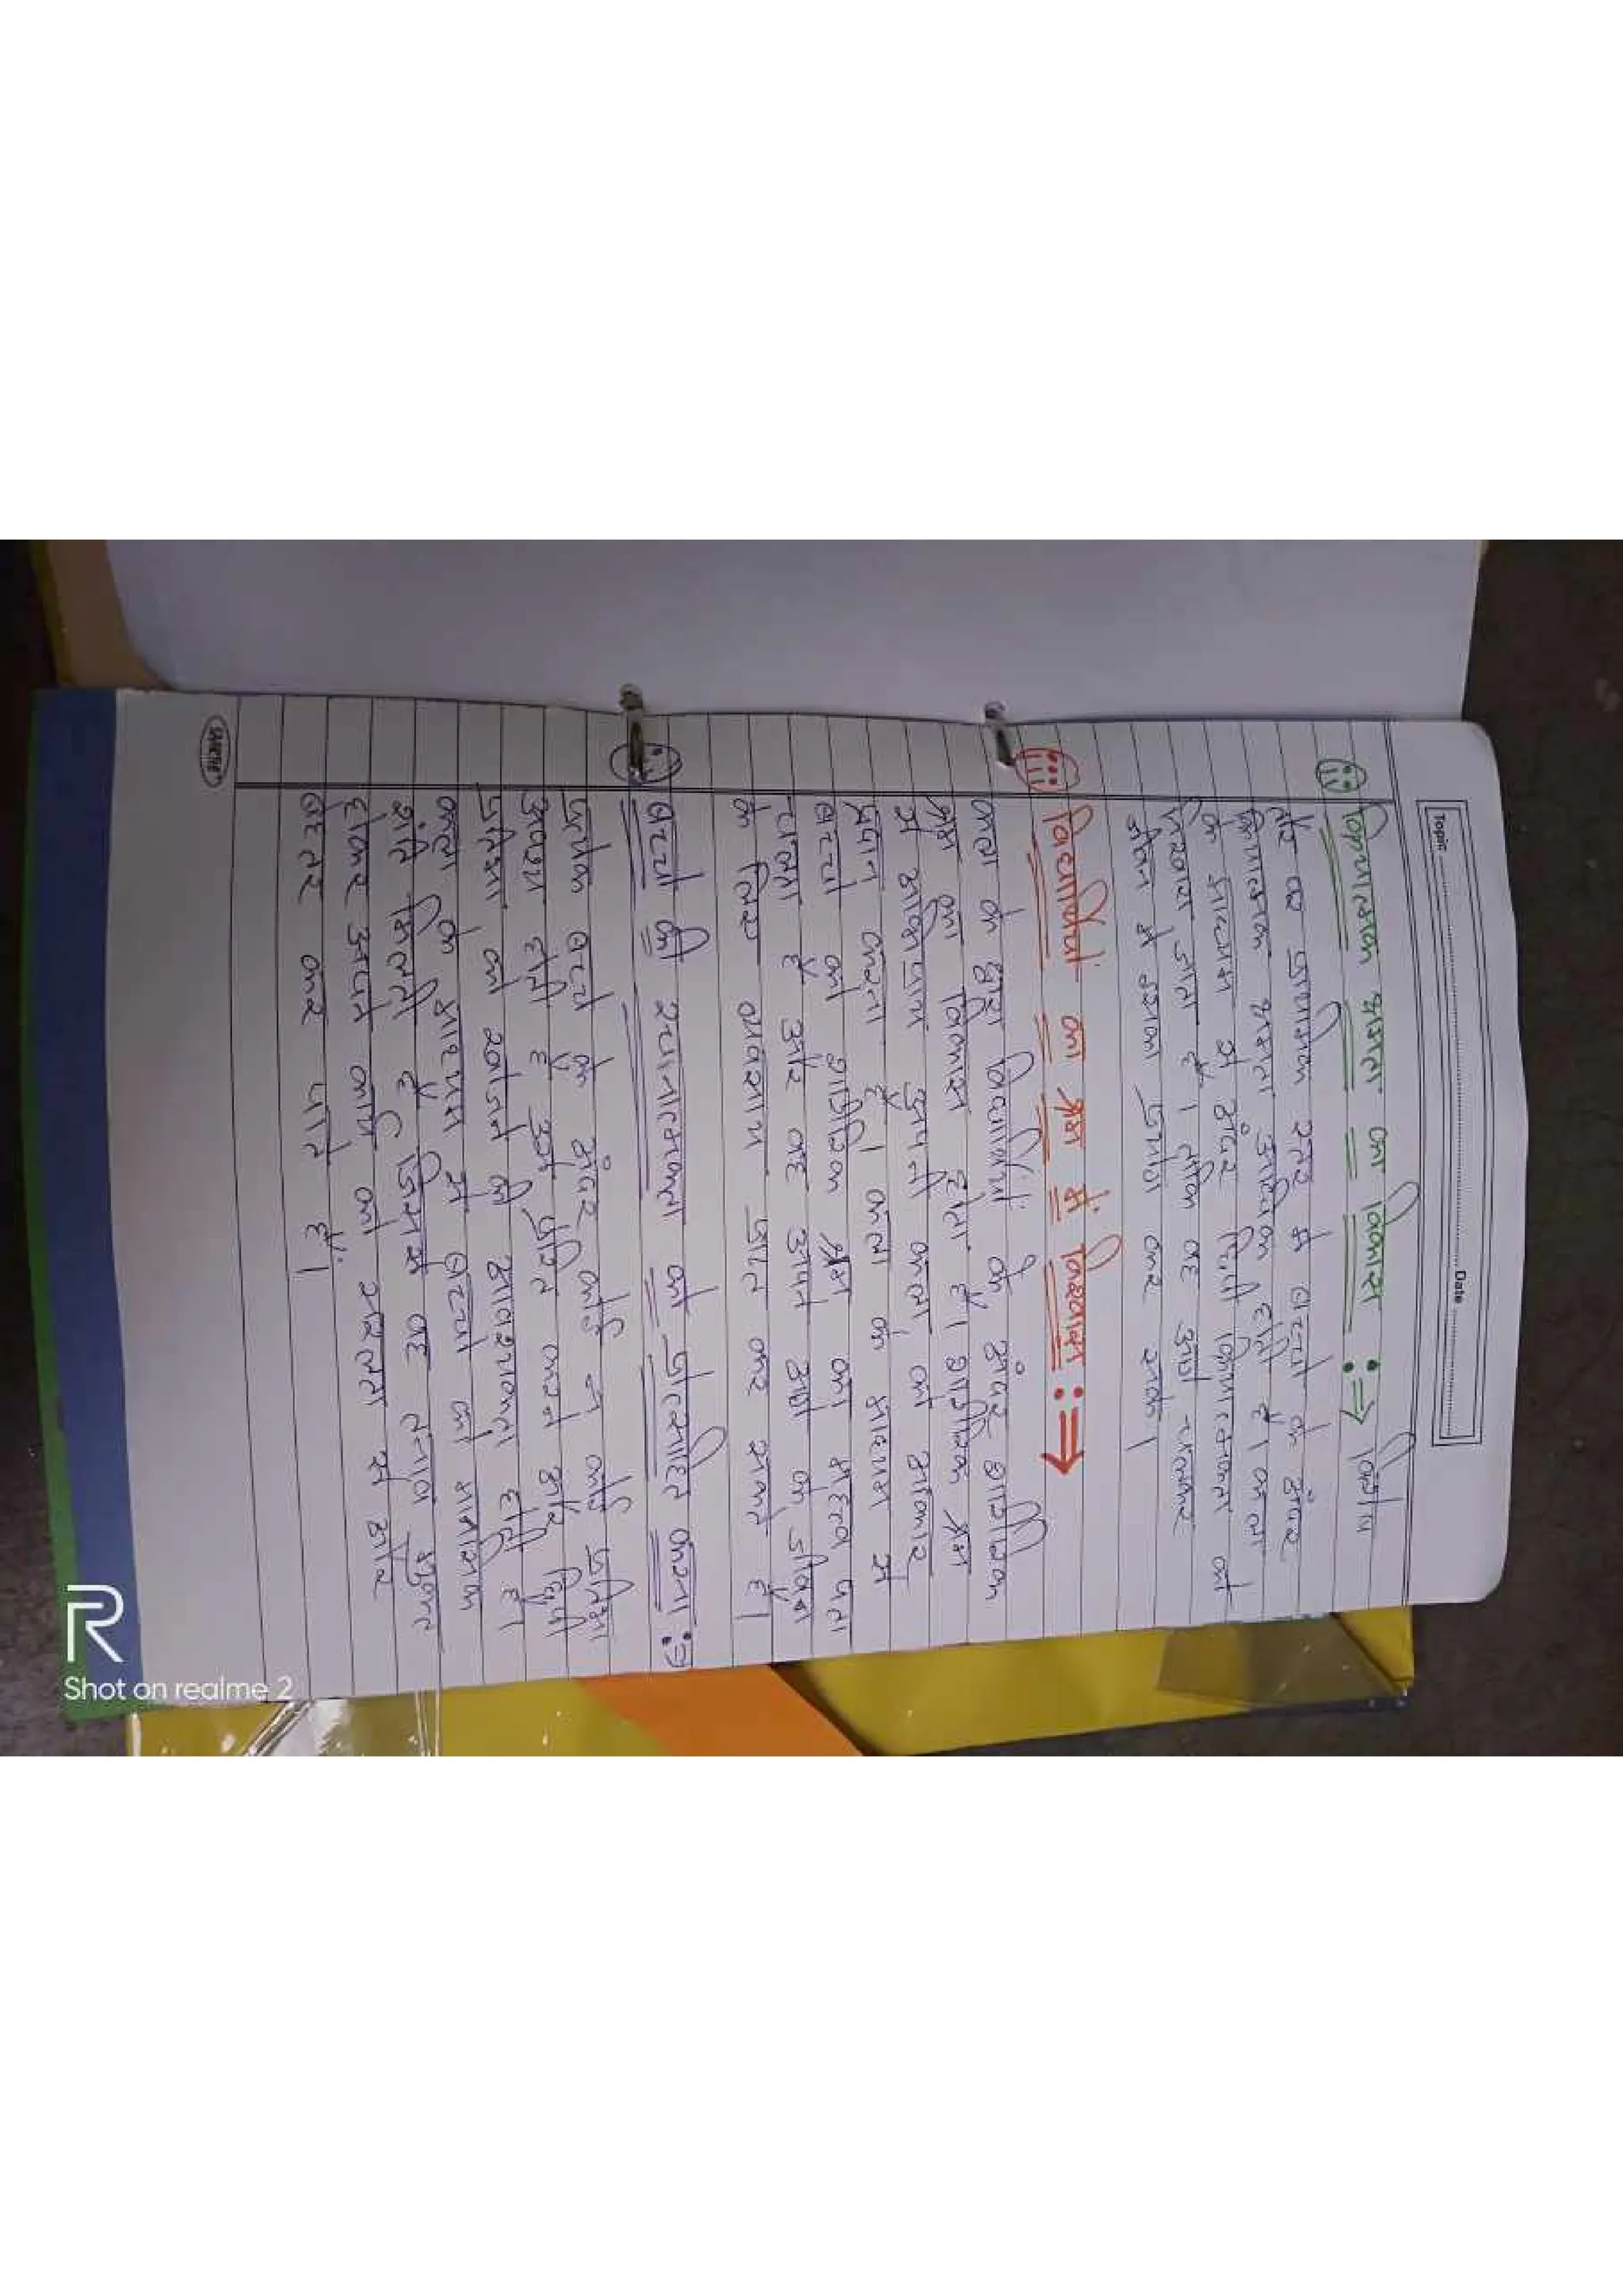 Topic ........ Date ........
(ii) क्रियात्मक क्षमता का विकास :⇒ विशेष
तौर पर प्राथमिक स्तर में बच्चों के अंदर
क्रियात्मक क्षमता अधिक होती है। कला
के माध्यम से अंदर छिपी क्रियात्मकता को
निखारा जाता है। ताकि वह आगे चलकर
जीवन में इसका प्रयोग कर सके।
(iii) विद्यार्थियों का श्रम में विश्वास :⇒
कला के द्वारा विद्यार्थियों के अंदर शारीरिक
श्रम का विकास होता है। शारीरिक श्रम
से अभिप्राय अपनी कला को आकार
प्रदान करना है। कला के माध्यम से
बच्चों को शारीरिक श्रम का महत्व पता
चलता है और वह अपने आगे के जीवन
के लिए व्यवसाय प्राप्त कर सकते हैं।
बच्चों की रचनात्मकता को प्रोत्साहित करना :⇒
प्रत्येक बच्चे के अंदर कोई न कोई प्रतिभा
अवश्य होती है इसे पूरित करने और छिपी
प्रतिभा को खोजने की आवश्यकता होती है।
कला के माध्यम से बच्चों को मानसिक
शांति मिलती है जिससे वह तनाव मुक्त
होकर अपने कार्य को सरलता से और
बेहतर कर पाते हैं।
R
Shot on realme 2